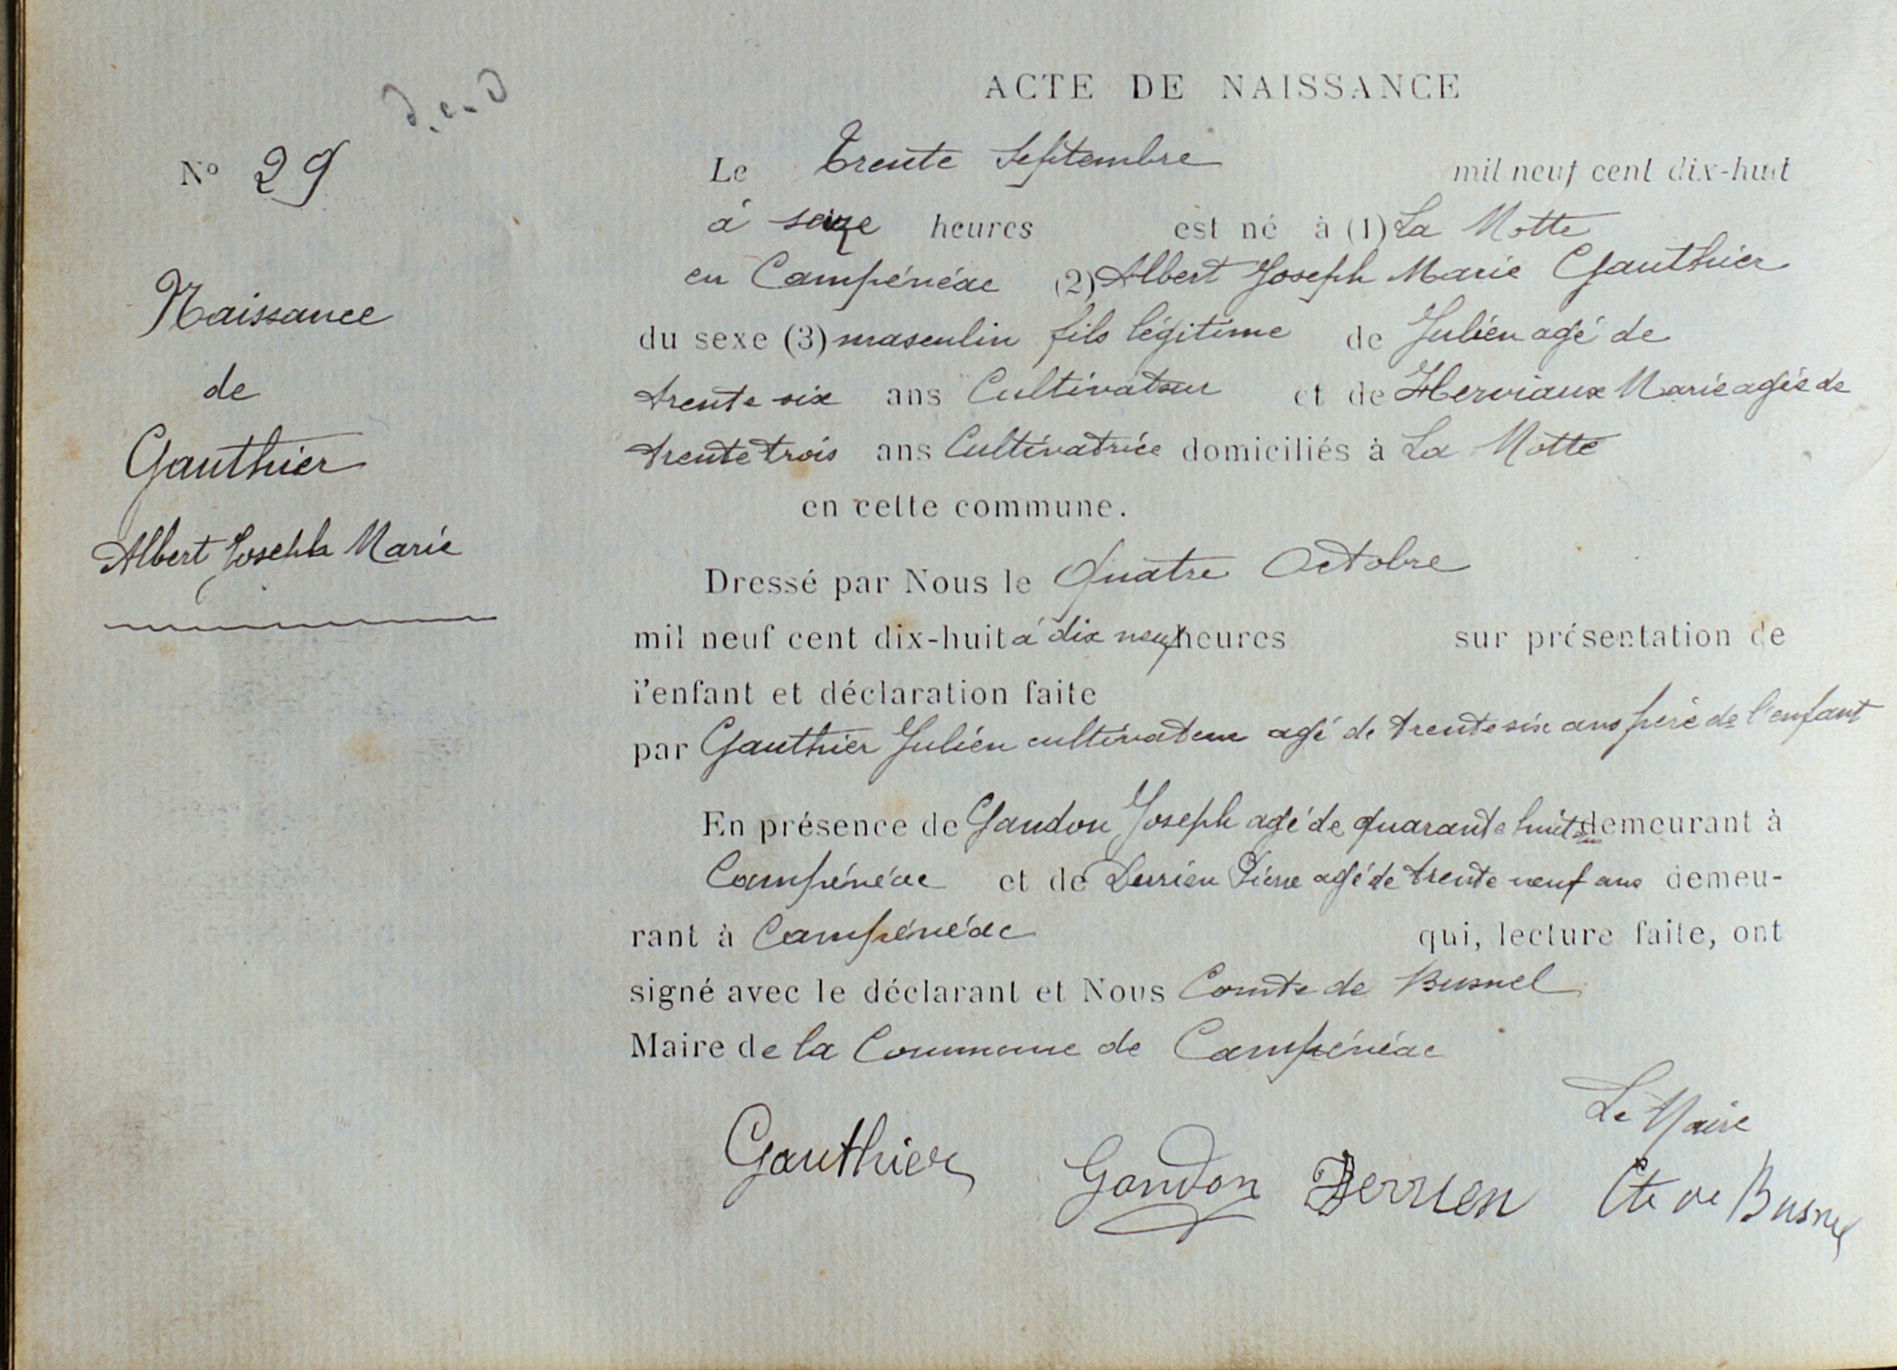 d.c.d
N° 29
Naissance
de
Gauthier
Albert Joseph Marie
ACTE DE NAISSANCE
Le trente Septembre mil neuf cent dix-huit
à seize heures est né à (1) La Motte
en Campénéac (2) Albert Joseph Marie Gauthier
du sexe (3) masculin fils légitime de Julien agé de
trente six ans Cultivateur et de Herviaux Marie agée de
trente trois ans Cultivatrice domiciliés à La Motte
en cette commune.
Dressé par Nous le Quatre Octobre
mil neuf cent dix-huit à dix neuf heures sur présentation de
l'enfant et déclaration faite
par Gauthier Julien cultivateur agé de trente six ans père de l'enfant
En présence de Gandon Joseph agé de quarante huit ans demeurant à
Campénéac et de Derrien Pierre agé de trente neuf ans demeu-
rant à Campénéac qui, lecture faite, ont
signé avec le déclarant et Nous Comte de Busnel
Maire de la Commune de Campénéac
Le Maire
Gauthier Gandon Derrien Cte de Busnel